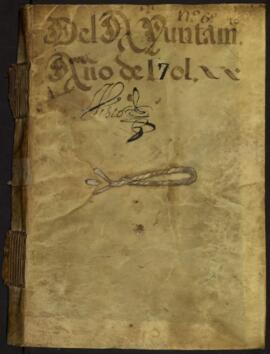 nº 6
Del Ayuntam.
Año de 1701.